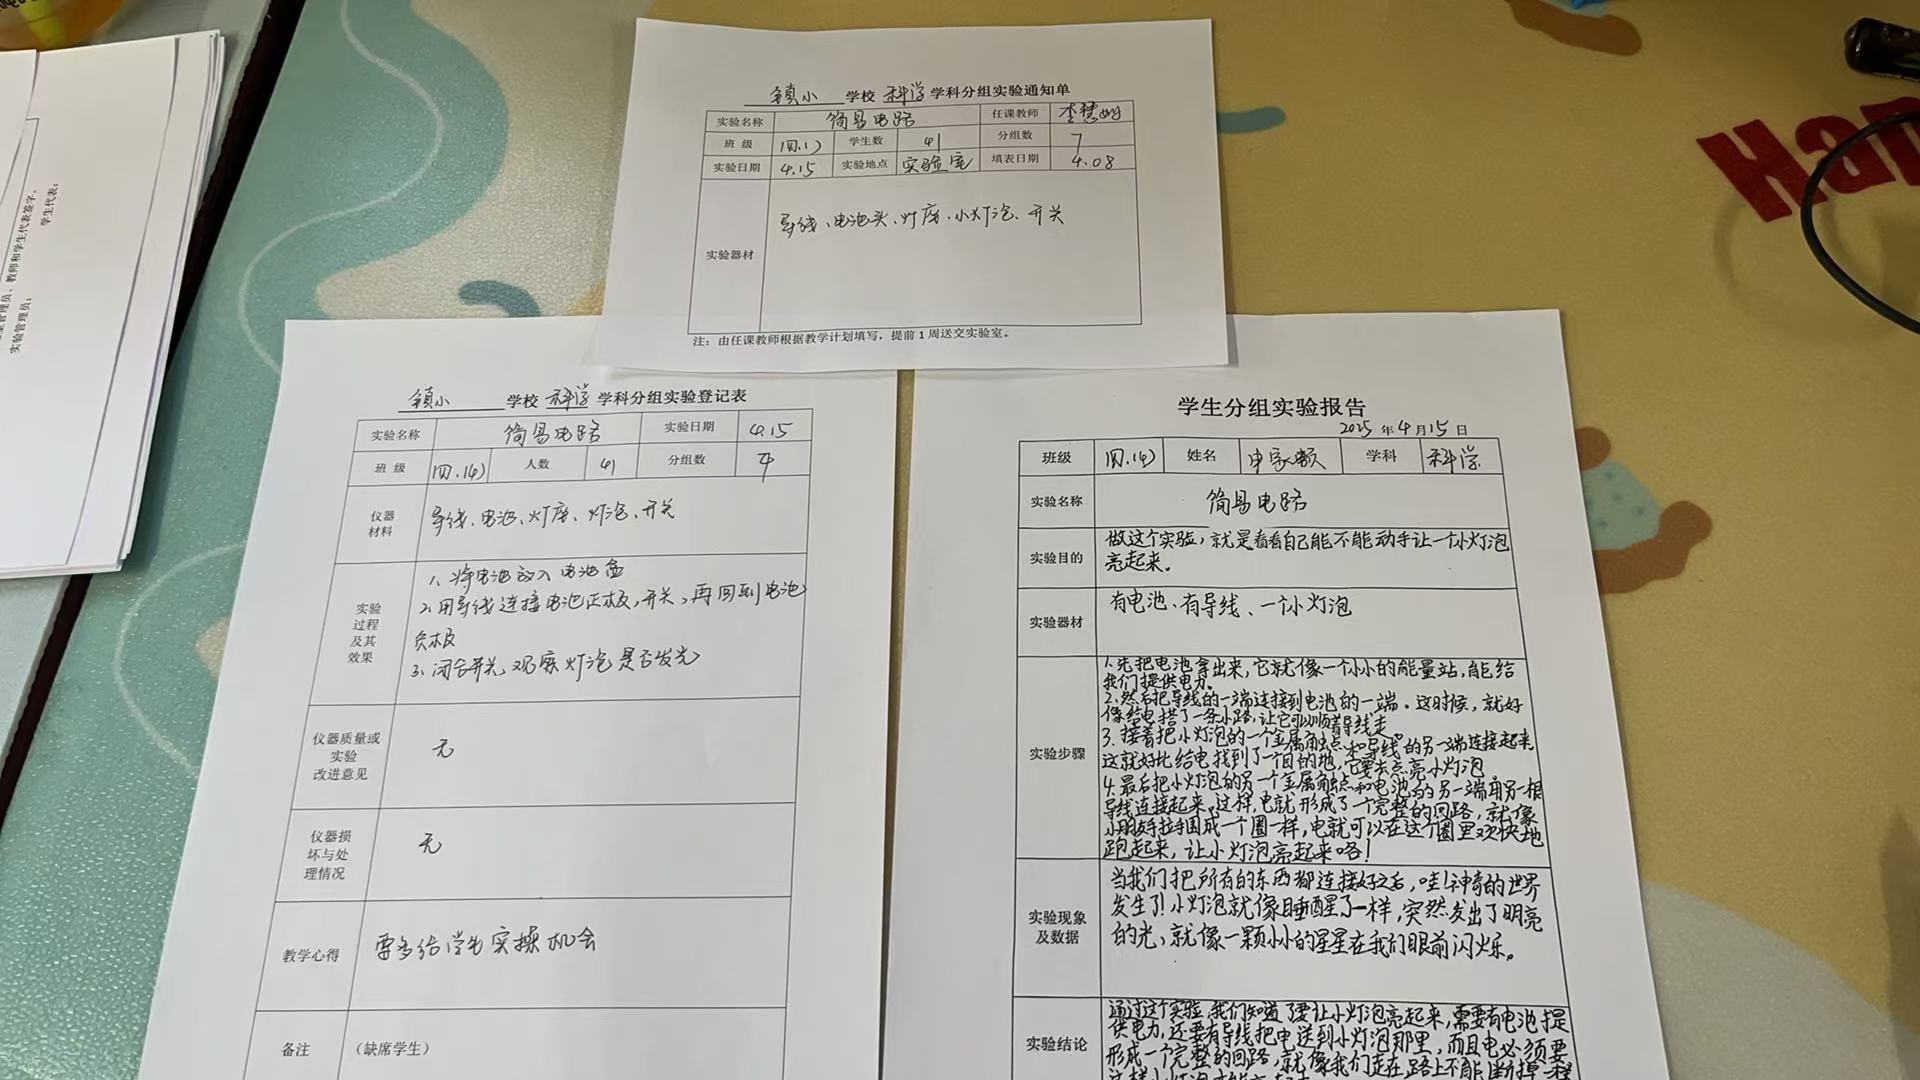 镇小 学校 科学 学科分组实验通知单
实验名称 简易电路 任课教师
班 级 学生数 41 分组数 7
实验日期 4.15 实验地点 实验室 填表日期 4.08
实验器材 导线、电池头、灯座、小灯泡、开关
注：由任课教师根据教学计划填写，提前1周送交实验室。
镇小 学校 科学 学科分组实验登记表
实验名称 简易电路 实验日期 4.15
班 级 四.(4) 人数 41 分组数
仪器材料 导线、电池、灯座、灯泡、开关
实验过程及其效果
1、将电池放入电池盒
2、用导线连接电池正极,开关,再回到电池
负极
3、闭合开关,观察灯泡是否发光
仪器质量或实验改进意见 无
仪器损坏与处理情况 无
教学心得 要多给学生实操机会
备注 （缺席学生）
学生分组实验报告
2025 年 4 月 15 日
班级 四.(4) 姓名 申家 学科 科学
实验名称 简易电路
实验目的 做这个实验，就是看看自己能不能动手让一个小灯泡
亮起来。
实验器材 有电池、有导线、一个小灯泡
实验步骤
1.先把电池拿出来，它就像一个小小的能量站，能给
我们提供电力。
2.然后把导线的一端连接到电池的一端。这时候，就好
像给电搭了一条小路，让它可以顺着导线走
3.接着把小灯泡的一个金属触点和导线的另一端连接起来，
这就好比给电找到了一个目的地，它要去点亮小灯泡
4.最后把小灯泡的另一个金属触点和电池的另一端用另一根
导线连接起来。这样，电就形成了一个完整的回路，就像
小朋友手拉手围成一个圈一样，电就可以在这个圈里欢快地
跑起来，让小灯泡亮起来咯！
实验现象及数据
当我们把所有的东西都连接好之后，哇！神奇的世界
发生了！小灯泡就像睡醒了一样，突然发出了明亮
的光，就像一颗小小的星星在我们眼前闪烁。
实验结论
通过这个实验，我们知道了要让小灯泡亮起来，需要有电池提
供电力，还要有导线把电送到小灯泡那里，而且电必须要
形成一个完整的回路，就像我们走在路上不能断掉一样
教师和学生代表签字。
实验管理员：
学生代表：
Han